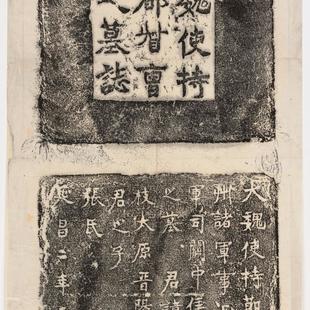 魏使持
都督曹
之墓誌
大魏使持節
州諸軍事
軍司關中侯
之墓 君諱
枝大原晉陽
君之子
張氏
延昌二年